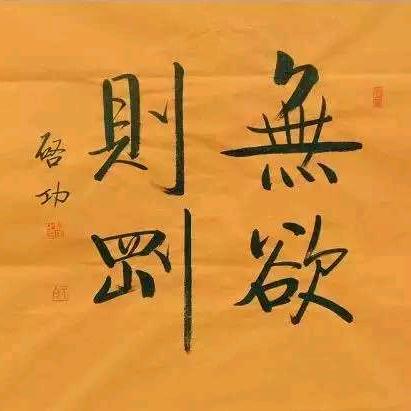 無欲
則剛
启功